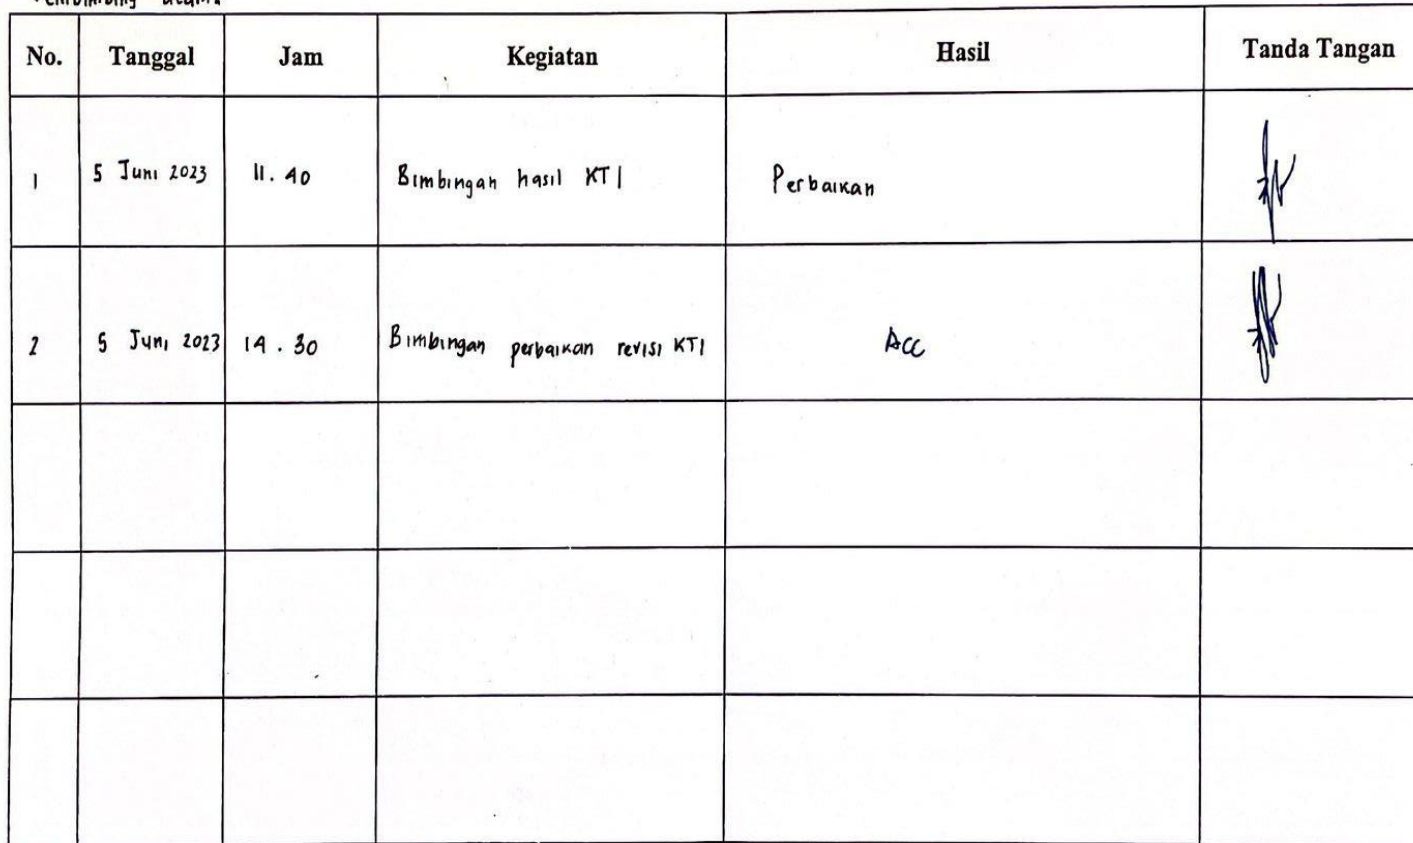 Pembimbing utama
No. Tanggal Jam Kegiatan Hasil Tanda Tangan
1 5 Juni 2023 11.40 Bimbingan hasil KTI Perbaikan
2 5 Juni 2023 14.30 Bimbingan perbaikan revisi KTI Acc